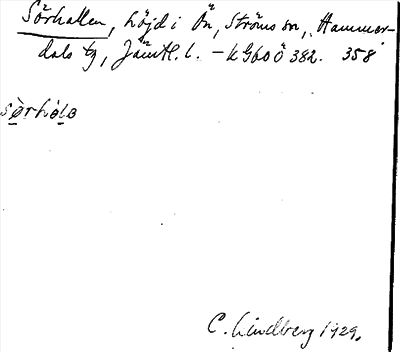 Sörhallen, höjd i Ön, Ströms sn, Hammer-
dals tg, Jämtl. l. – kG60Ö 382. 358
sø̀rhálɔ
C. Lindberg 1929.